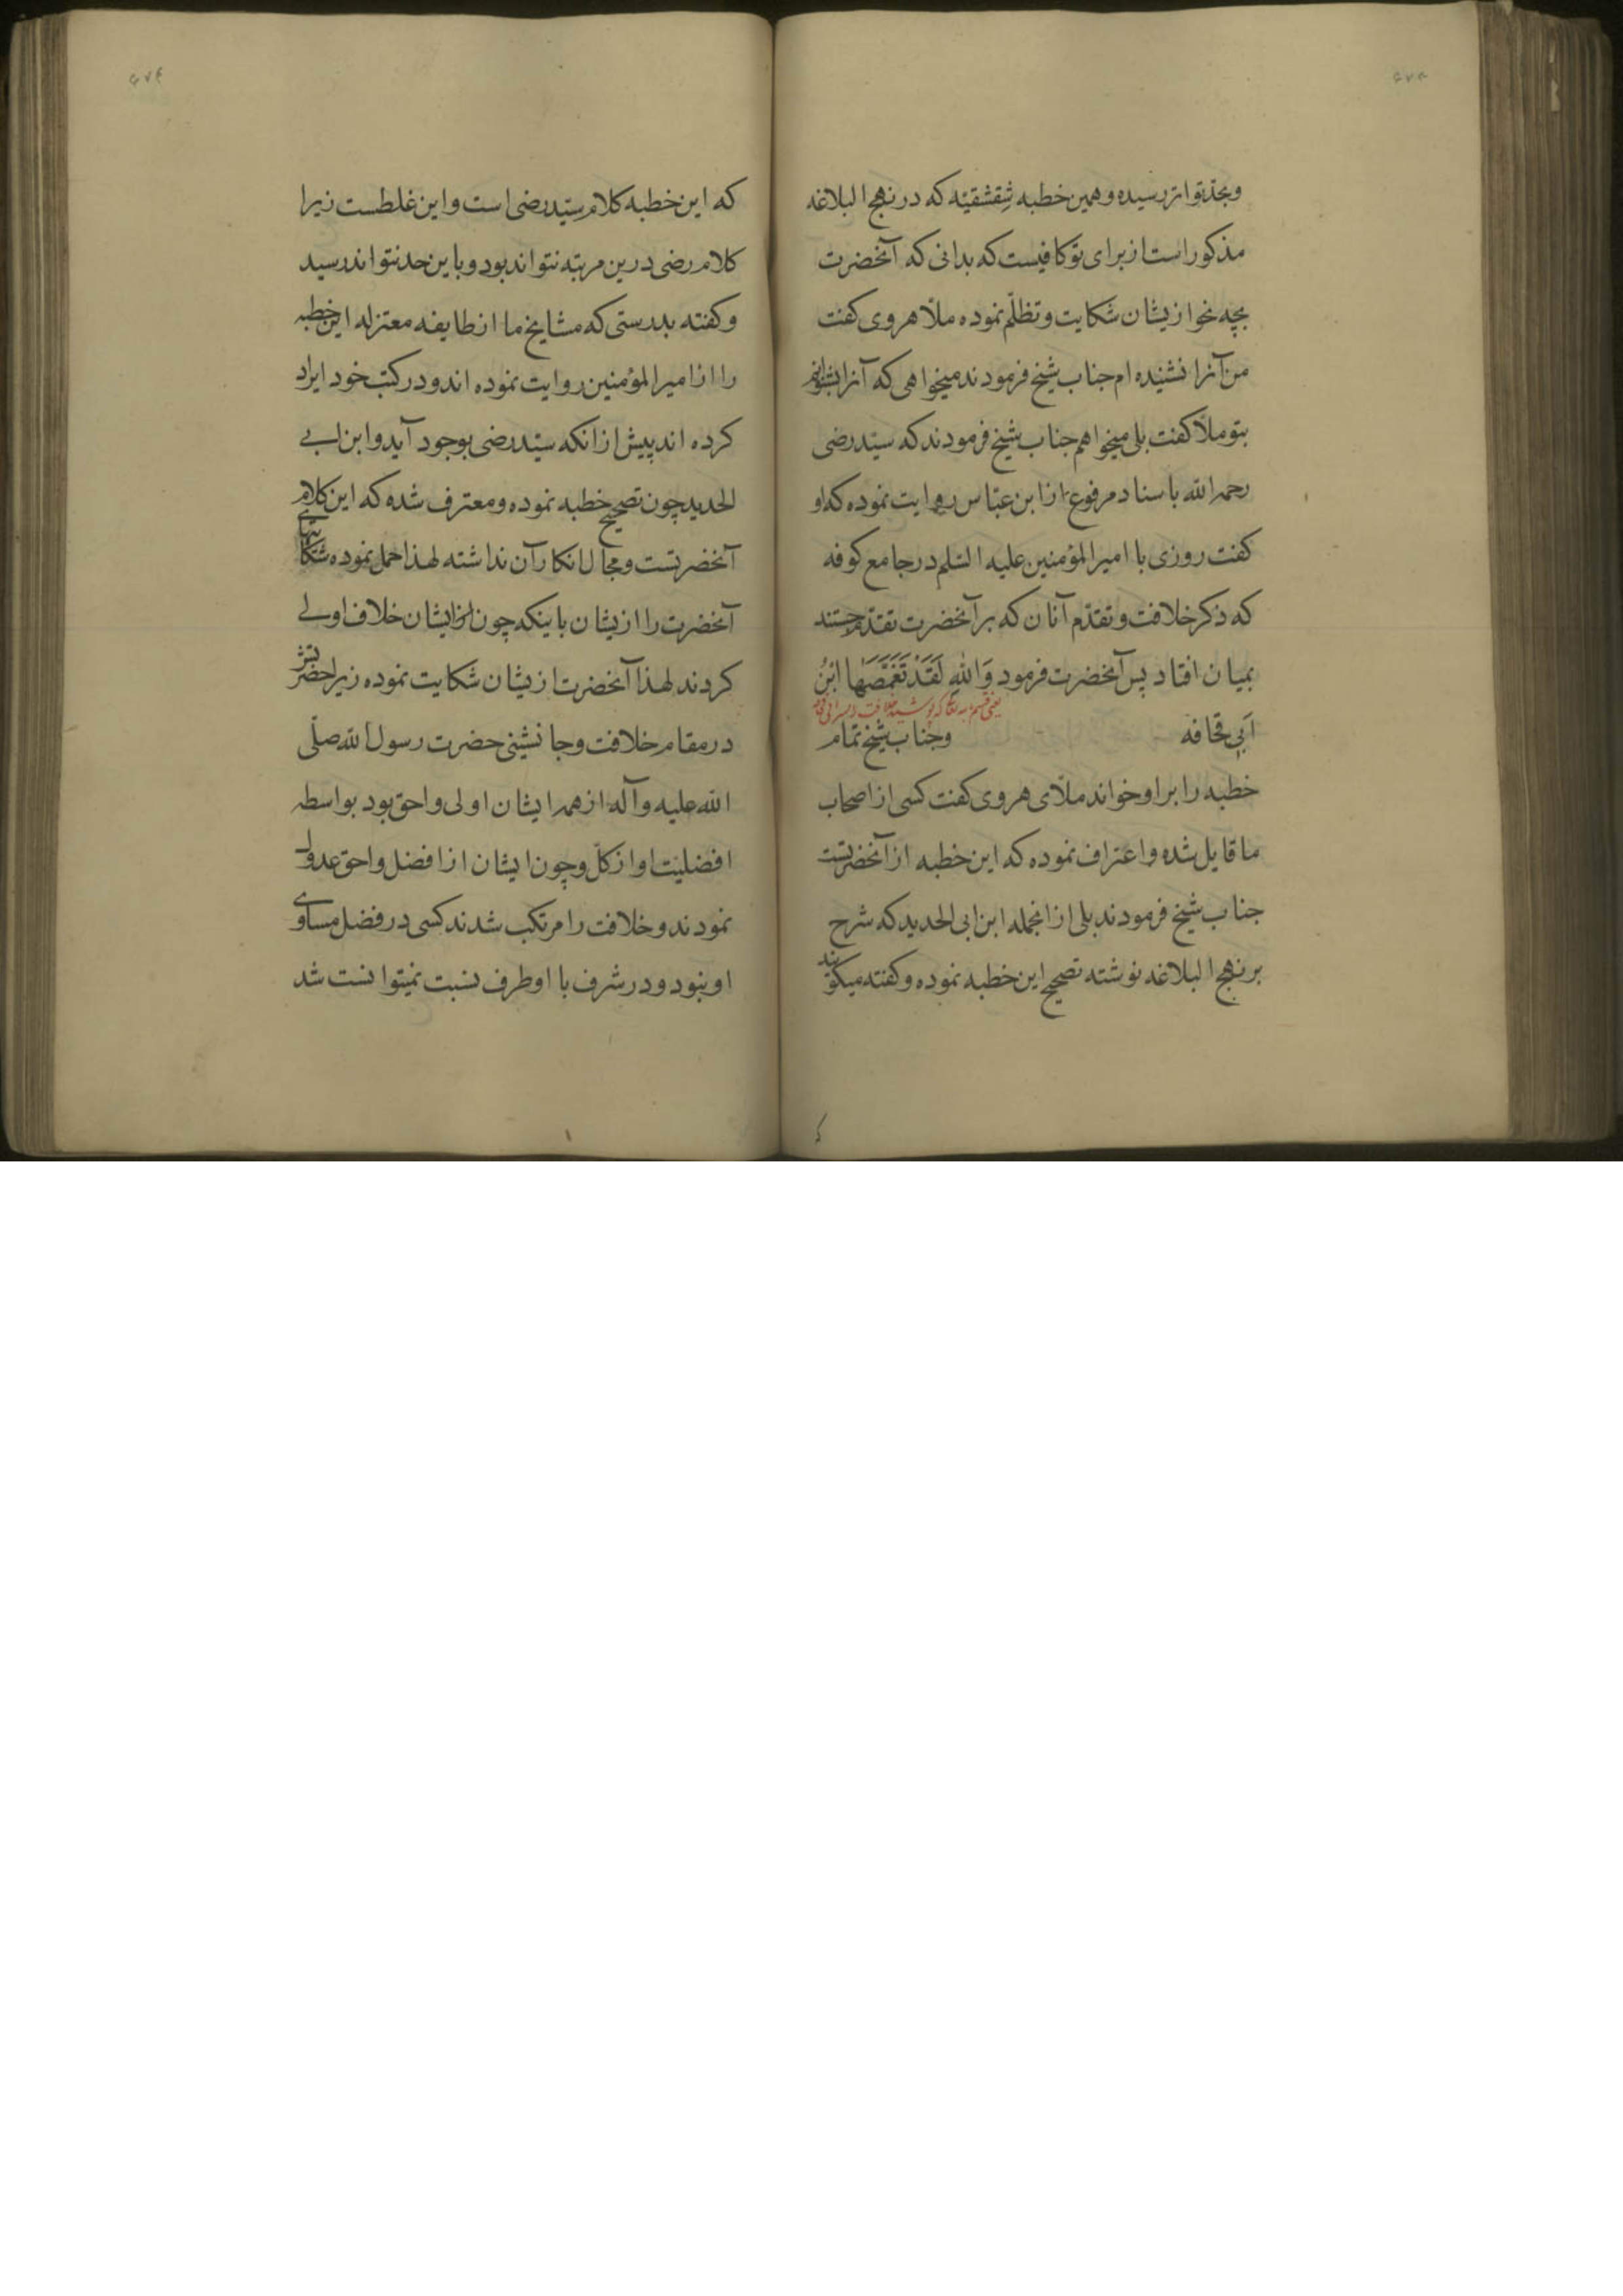 وبحدّ تواتر رسیده وهمین خطبه شِقشقیّه که در نهج البلاغه
مذکور است از برای تو کافیست که بدانی که آنحضرت
بچه نحو ازیشان شکایت وتظلّم نموده ملّا هروی کفت
من آنرا نشنیده ام جناب شیخ فرمودند میخواهی که آنرا بشنوانم
بتو ملّا کفت بلی میخواهم جناب شیخ فرمودند که سیّد رضی
رحمه الله باسناد مرفوع از ابن عبّاس روایت نموده که او
کفت روزی با امیر المؤمنین علیه السّلم در جامع کوفه
که ذکر خلافت وتقدّم آنان که بر آنحضرت تقدّم جستند
بمیان افتاد پس آنحضرت فرمود وَاللهِ لَقَدْ تَقَمَّصَها ابْنُ
اَبِی قحافه وجناب شیخ تمام
خطبه را بر او خواند ملّای هروی کفت کسی از اصحاب
ما قایل شده واعتراف نموده که این خطبه از آنحضرتست
جناب شیخ فرمودند بلی از انجمله ابن ابی الحدید که شرح
بر نهج البلاغه نوشته تصحیح این خطبه نموده وکفته میکویند
که این خطبه کلام سیّد رضی است واین غلطست زیرا
کلام رضی درین مرتبه نتواند بود وباین حد نتواند رسید
وکفته بدرستی که مشایخ ما از طایفه معتزله این خطبه
را از امیر المؤمنین روایت نموده اند ودر کتب خود ایراد
کرده اند پیش از انکه سیّد رضی بوجود آید وابن ابی
الحدید چون تصحیح خطبه نموده ومعترف شده که این کلام
آنحضرتست ومجال انکار آن نداشته لهذا حمل نموده شکایتهای
آنحضرت را ازیشان باینکه چون ایشان خلاف اولی
کردند لهذا آنحضرت ازیشان شکایت نموده زیرا حضرتش
در مقام خلافت وجانشینی حضرت رسول الله صلّی
الله علیه وآله از همه ایشان اولی واحق بود بواسطه
افضلیّت او از کلّ وچون ایشان از افضل واحق عدول
نمودند وخلافت را مرتکب شدند کسی در فضل مساوی
او نبود ودر شرف با او طرف نسبت نمیتوانست شد